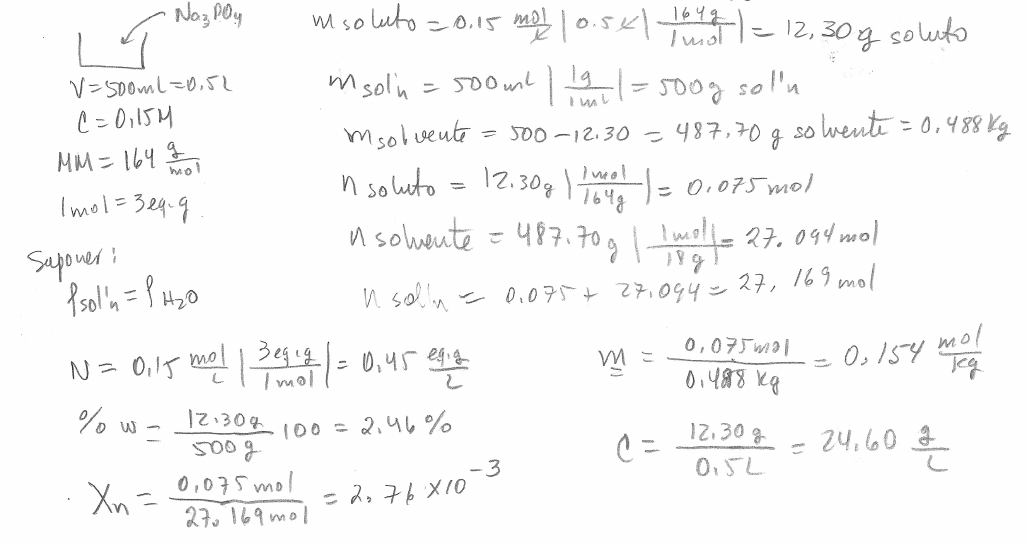 Na3PO4
V=500mL=0,5L
C=0,15M
MM=164 g/mol
1mol=3eq.g
Suponer:
ρsol'n=ρH2O
m soluto = 0.15 mol/L | 0.5L | 164g/1mol | = 12,30g soluto
m sol'n = 500mL | 1g/1mL | = 500g sol'n
m solvente = 500-12.30 = 487,70 g solvente = 0.488 kg
n soluto = 12.30g | 1mol/164g | = 0.075 mol
n solvente = 487.70g | 1mol/18g | = 27.094 mol
n sol'n = 0.075 + 27.094 = 27,169 mol
N = 0,15 mol/L | 3eq.g/1mol | = 0,45 eq.g/L
% w = 12.30g/500g 100 = 2.46%
Xn = 0,075 mol/27,169mol = 2,76 X10^-3
m = 0,075mol/0.488 kg = 0,154 mol/kg
C = 12,30g/0,5L = 24,60 g/L